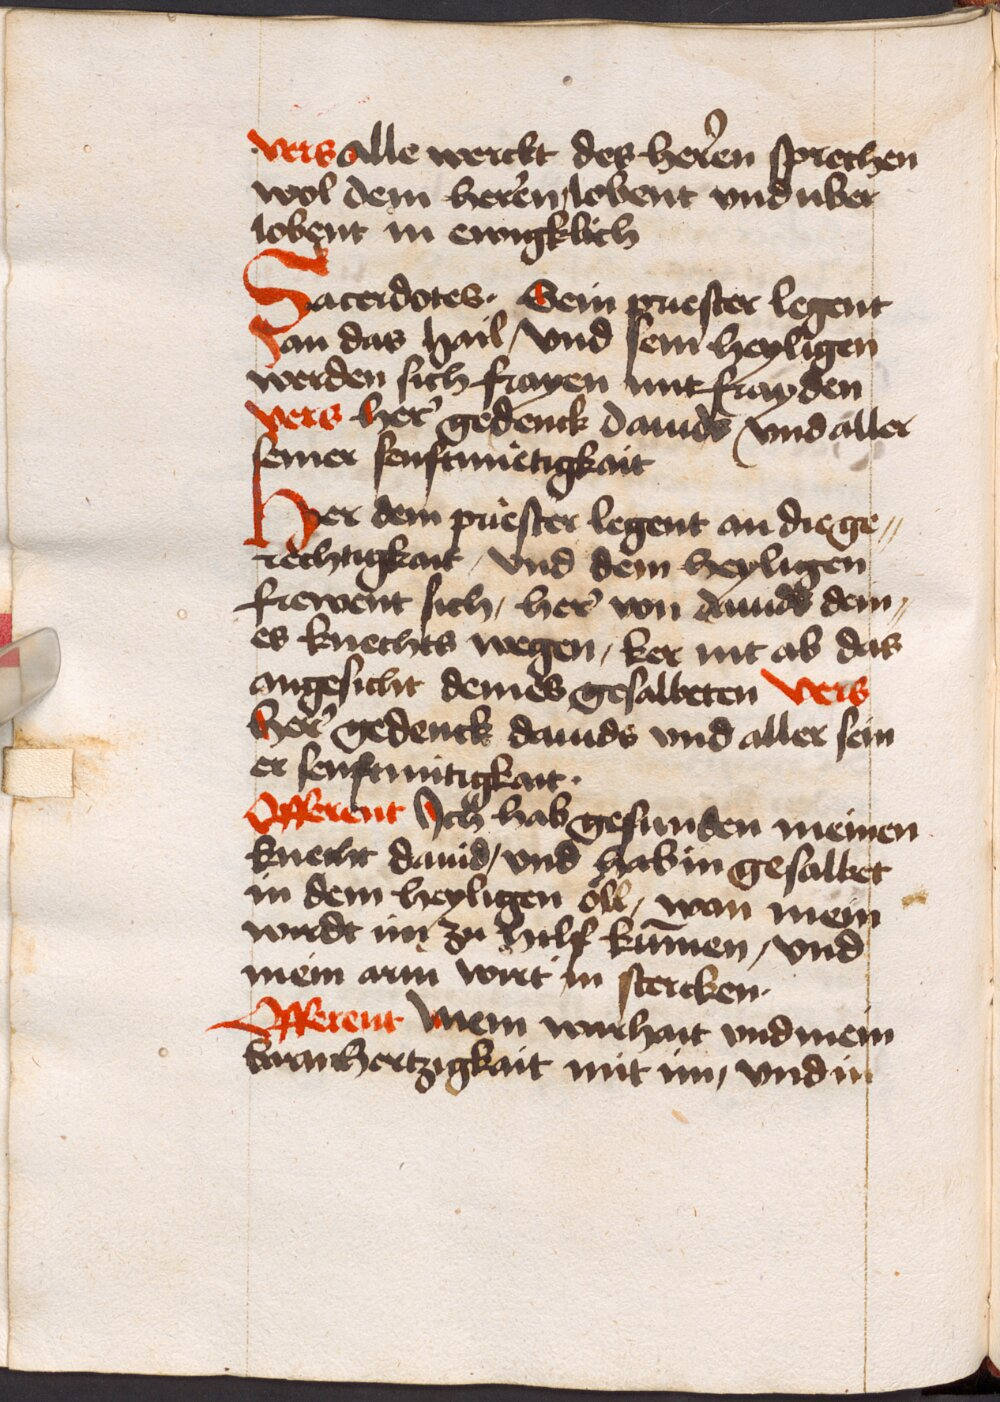 vers alle werckt des heren sprechen
wol dem heren, lobent vnd uber
lobent in ewigklich
Sacerdotes. Sein priester legent
an das hail, vnd sein heyligen
werden sich frayen mit frayden
vers her gedenck dauids vnd aller
seiner senftmietigkait
Her dein priester legent an die ge„
rechtigkait, vnd dein heyligen
frewent sich, her von dauids dein„
es knechts wegen, ker nit ab das
angesicht deines gesalbeten vers
her gedenck dauids vnd aller sein
er senftmitigkait.
Offerent Ich hab gefunden meinen
knecht dauid, vnd hab in gesalbet
in dem heyligen öll, wan mein
wirdt im zu hilf kumen, vnd
mein arm wirt in stercken.
Offerent Mein warhait vnd mein
barmhertzigkait mit im, vnd in